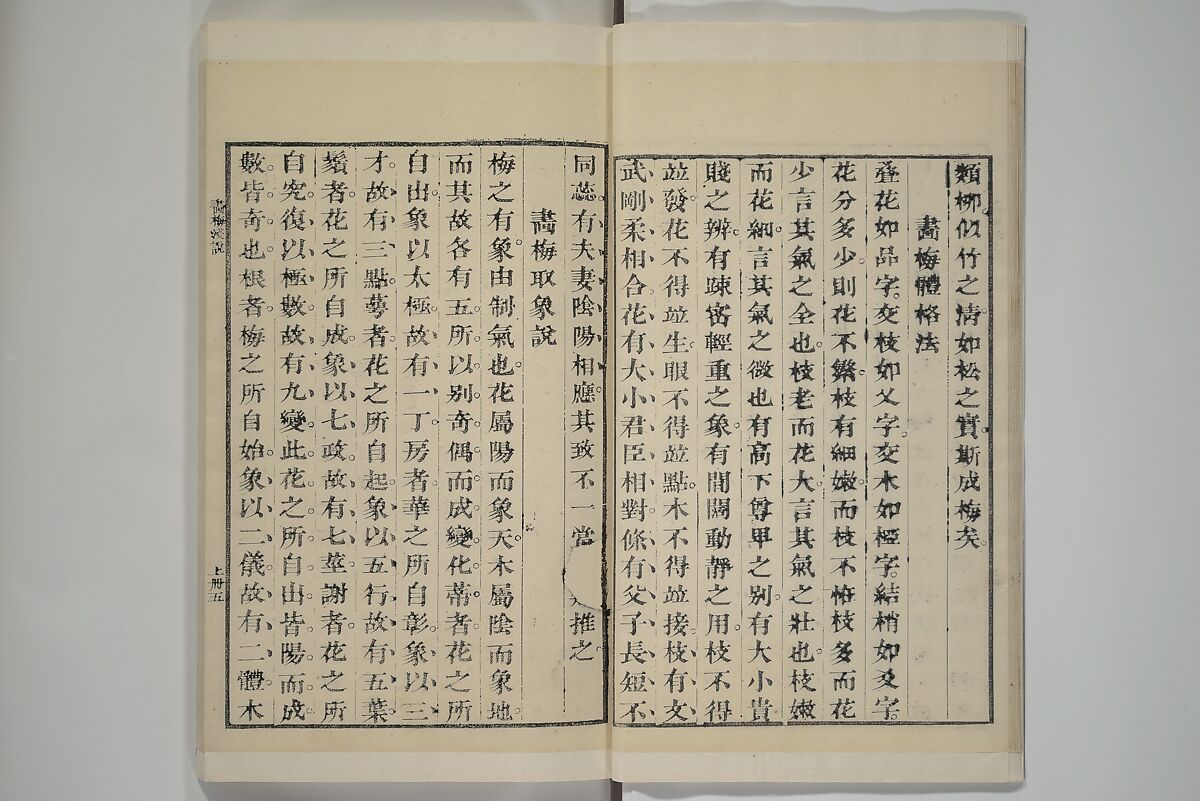 類柳似竹之淸如松之實斯成梅矣
畫梅體格法
疊花如品字。交枝如乂字。交木如椏字。結梢如爻字。
花分多少。則花不繁。枝有細嫩。而枝不怪。枝多而花
少言其氣之全也。枝老而花大。言其氣之壯也。枝嫩
而花細。言其氣之微也。有高下尊卑之別。有大小貴
賤之辨。有疎密輕重之象。有間闊動靜之用。枝不得
竝發。花不得竝生。眼不得竝點。木不得竝接。枝有文
武剛柔相合。花有大小君臣相對。條有父子長短不
同。蕊有夫妻陰陽相應。其致不一當 推之。
畫梅取象說
梅之有象。由制氣也。花屬陽而象天。木屬陰而象地。
而其故各有五。所以別奇偶而成變化。蔕者花之所
自出。象以太極。故有一丁。房者華之所自彰。象以三
才。故有三點。萼者花之所自起。象以五行。故有五葉。
鬚者花之所自成。象以七政。故有七莖。謝者花之所
自究。復以極數。故有九變。此花之所自出皆陽。而成
數皆奇也。根者梅之所自始。象以二儀。故有二體。木
畫梅淺說
上冊五